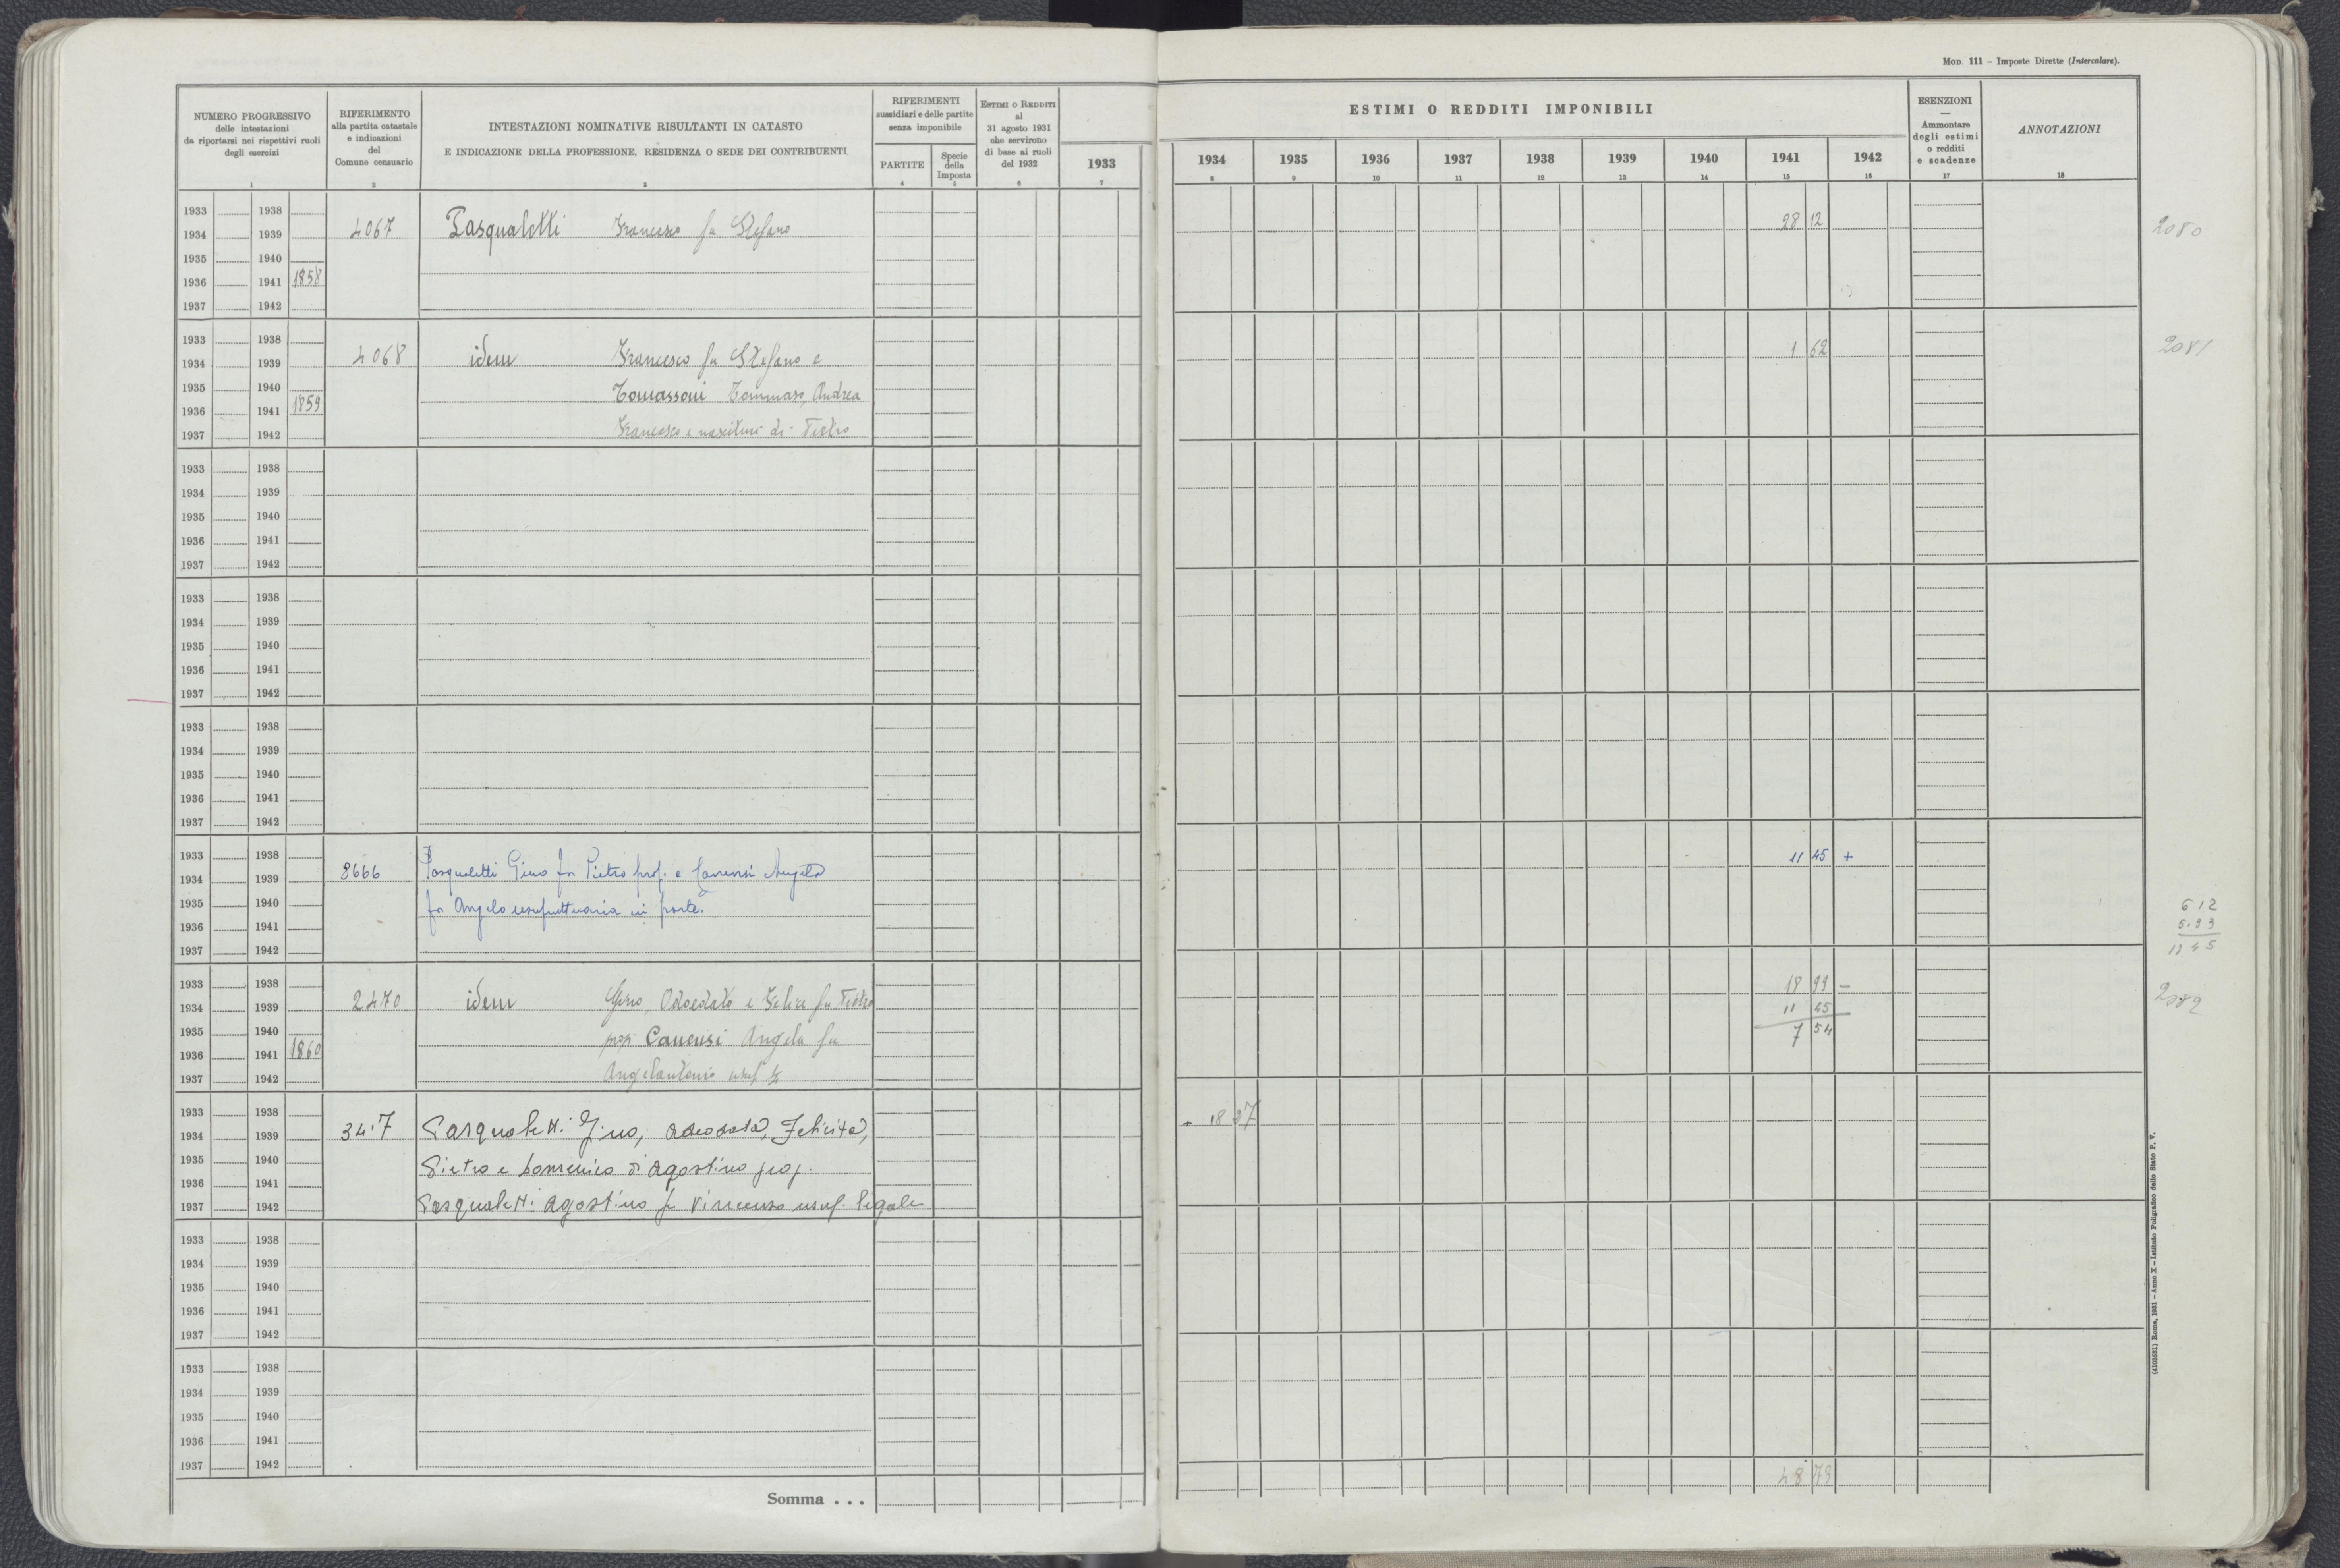 MOD. 111 – Imposte Dirette (Intercalare).
NUMERO PROGRESSIVO
delle intestazioni
da riportarsi nei rispettivi ruoli
degli esercizi
1
RIFERIMENTO
alla partita catastale
e indicazioni
del
Comune censuario
2
INTESTAZIONI NOMINATIVE RISULTANTI IN CATASTO
E INDICAZIONE DELLA PROFESSIONE, RESIDENZA O SEDE DEI CONTRIBUENTI
3
RIFERIMENTI
sussidiari e delle partite
senza imponibile
PARTITE
4
Specie
della
Imposta
5
ESTIMI O REDDITI
al
31 agosto 1931
che servirono
di base ai ruoli
del 1932
6
1933
7
ESTIMI O REDDITI IMPONIBILI
1934 1935 1936 1937 1938 1939 1940 1941 1942
8 9 10 11 12 13 14 15 16
ESENZIONI
—
Ammontare
degli estimi
o redditi
e scadenze
17
ANNOTAZIONI
18
1933 1938
1934 1939 4067 Pasqualetti Francesco fu Stefano 28 12 2080
1935 1940
1936 1941 1858
1937 1942
1933 1938
1934 1939 4068 idem Francesco fu Stefano e 1 62 2081
1935 1940 Tomassoni Tommaso, Andrea
1936 1941 1859
1937 1942 Francesco e nascituri di Pietro
1933 1938
1934 1939
1935 1940
1936 1941
1937 1942
1933 1938
1934 1939
1935 1940
1936 1941
1937 1942
1933 1938
1934 1939
1935 1940
1936 1941
1937 1942
1933 1938 11 45 +
1934 1939 8666 Pasqualetti Gino fu Pietro prop. e Canensi Angela
1935 1940 fu Angelo usufruttuaria in parte. 6 12
1936 1941 5.33
1937 1942 11 45
1933 1938 18 99 –
1934 1939 2470 idem Gino, Adoedato e Felice fu Pietro 11 45 2082
1935 1940 7 54
1936 1941 1860 prop Canensi Angela fu
1937 1942 Angelantonio usuf
1933 1938
1934 1939 Pasqualetti Gino, Adeodata, Felicita, + 18
1935 1940 Pietro e Domenico di Agostino prop.
1936 1941
1937 1942 Pasqualetti Agostino fu Vincenzo usuf. legale
1933 1938
1934 1939
1935 1940
1936 1941
1937 1942
1933 1938
1934 1939
1935 1940
1936 1941
1937 1942
48 73
Somma . . .
(4105581) Roma, 1931 – Anno X – Istituto Poligrafico dello Stato P. V.